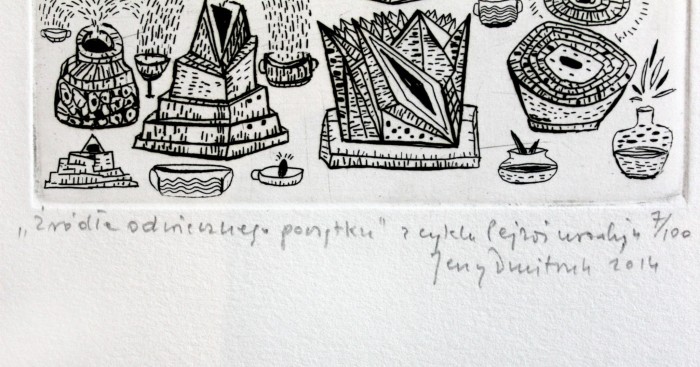 „Źródła odwiecznego początku" z cyklu Pejzaż 7/100
Jerzy Dmitruk 2014